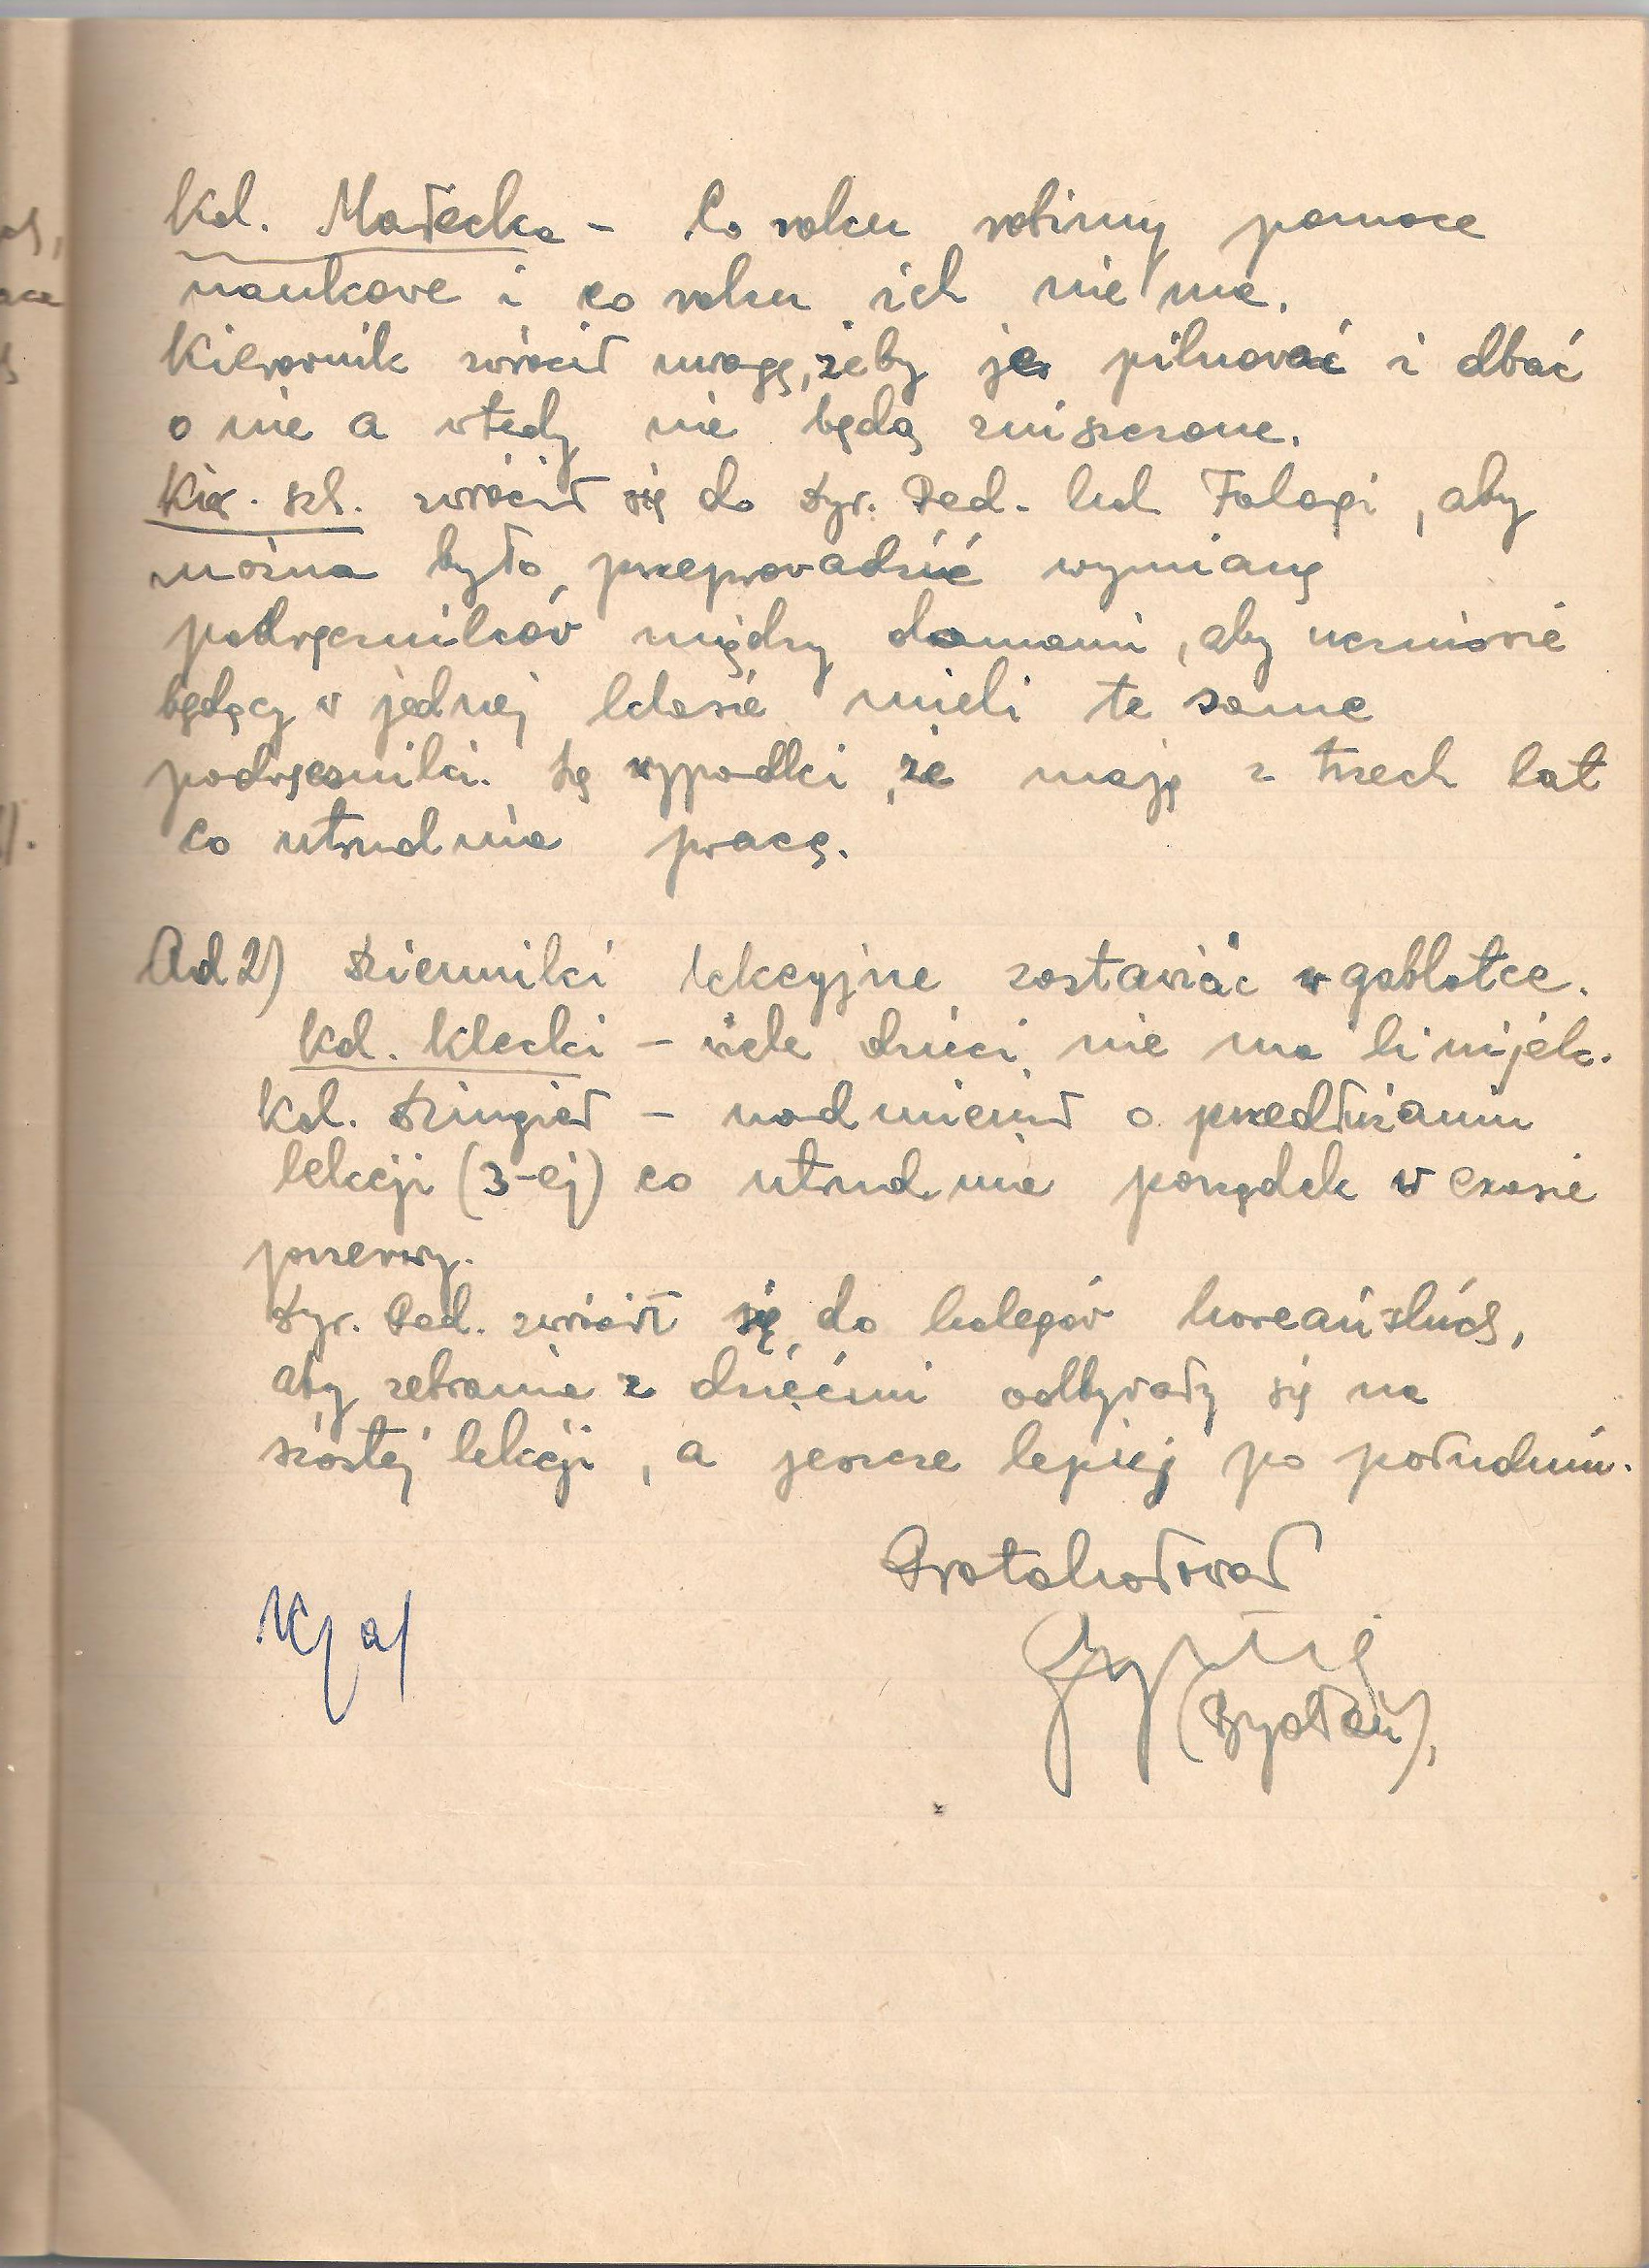 Kol. Małecka - Co roku robimy pomoce
naukowe i co roku ich nie ma.
Kierownik zwrócił uwagę, żeby je pilnować i dbać
o nie a wtedy nie będą zniszczone.
Kier. szk. zwrócił się do Dyr. Ped. kol Falagi, aby
można było przeprowadzić wymianę
podręczników między domami, aby uczniowie
będący w jednej klasie mieli te same
podręczniki. Są wypadki, że mają z trzech lat
co utrudnia pracę.
Ad 2) Dzienniki lekcyjne zostawiać w gablotce.
Kol. Klecki - wiele dzieci nie ma linijek.
Kol. Dzingieł - nadmienił o przedłużaniu
lekcji (3-ej) co utrudnia porządek w czasie
przerwy.
Dyr. Ped. zwrócił się do kolegów koreańskich,
aby zebrania z dziećmi odbywały się na
szóstej lekcji, a jeszcze lepiej po południu.
Protokołował